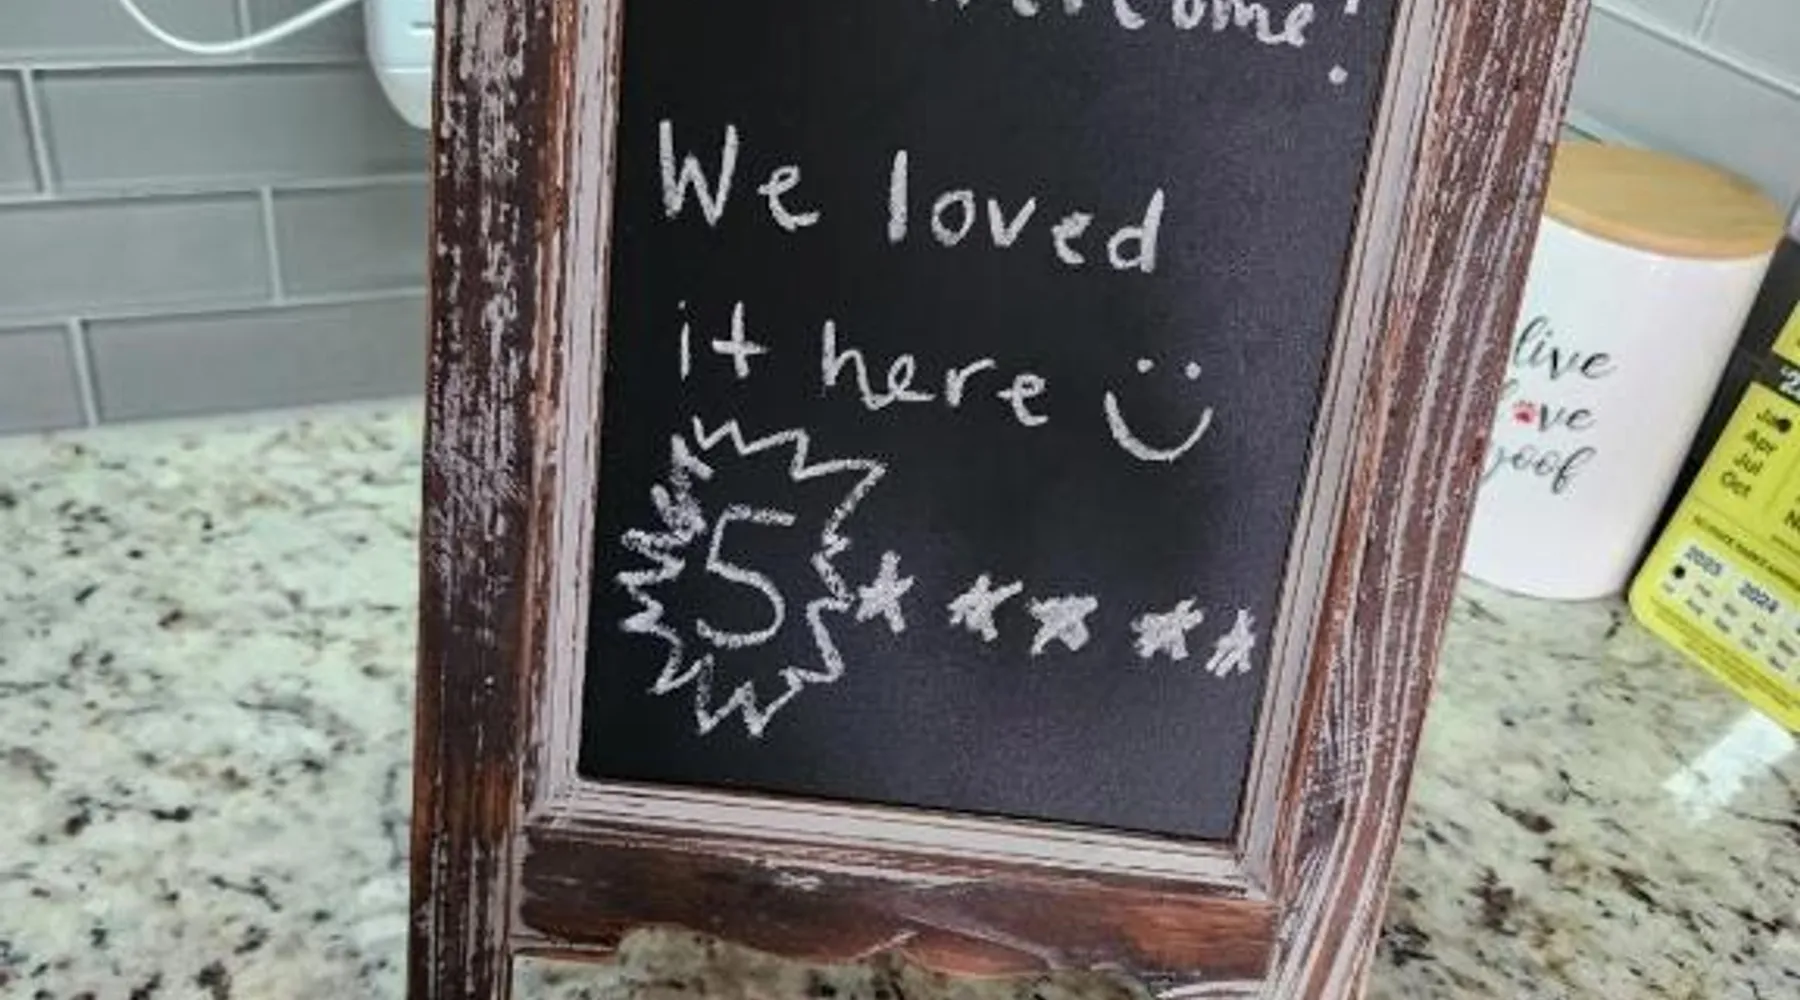 welcome!
We loved
it here
5
live
love
woof
Jan
Apr
Jul
Oct
2023 2024